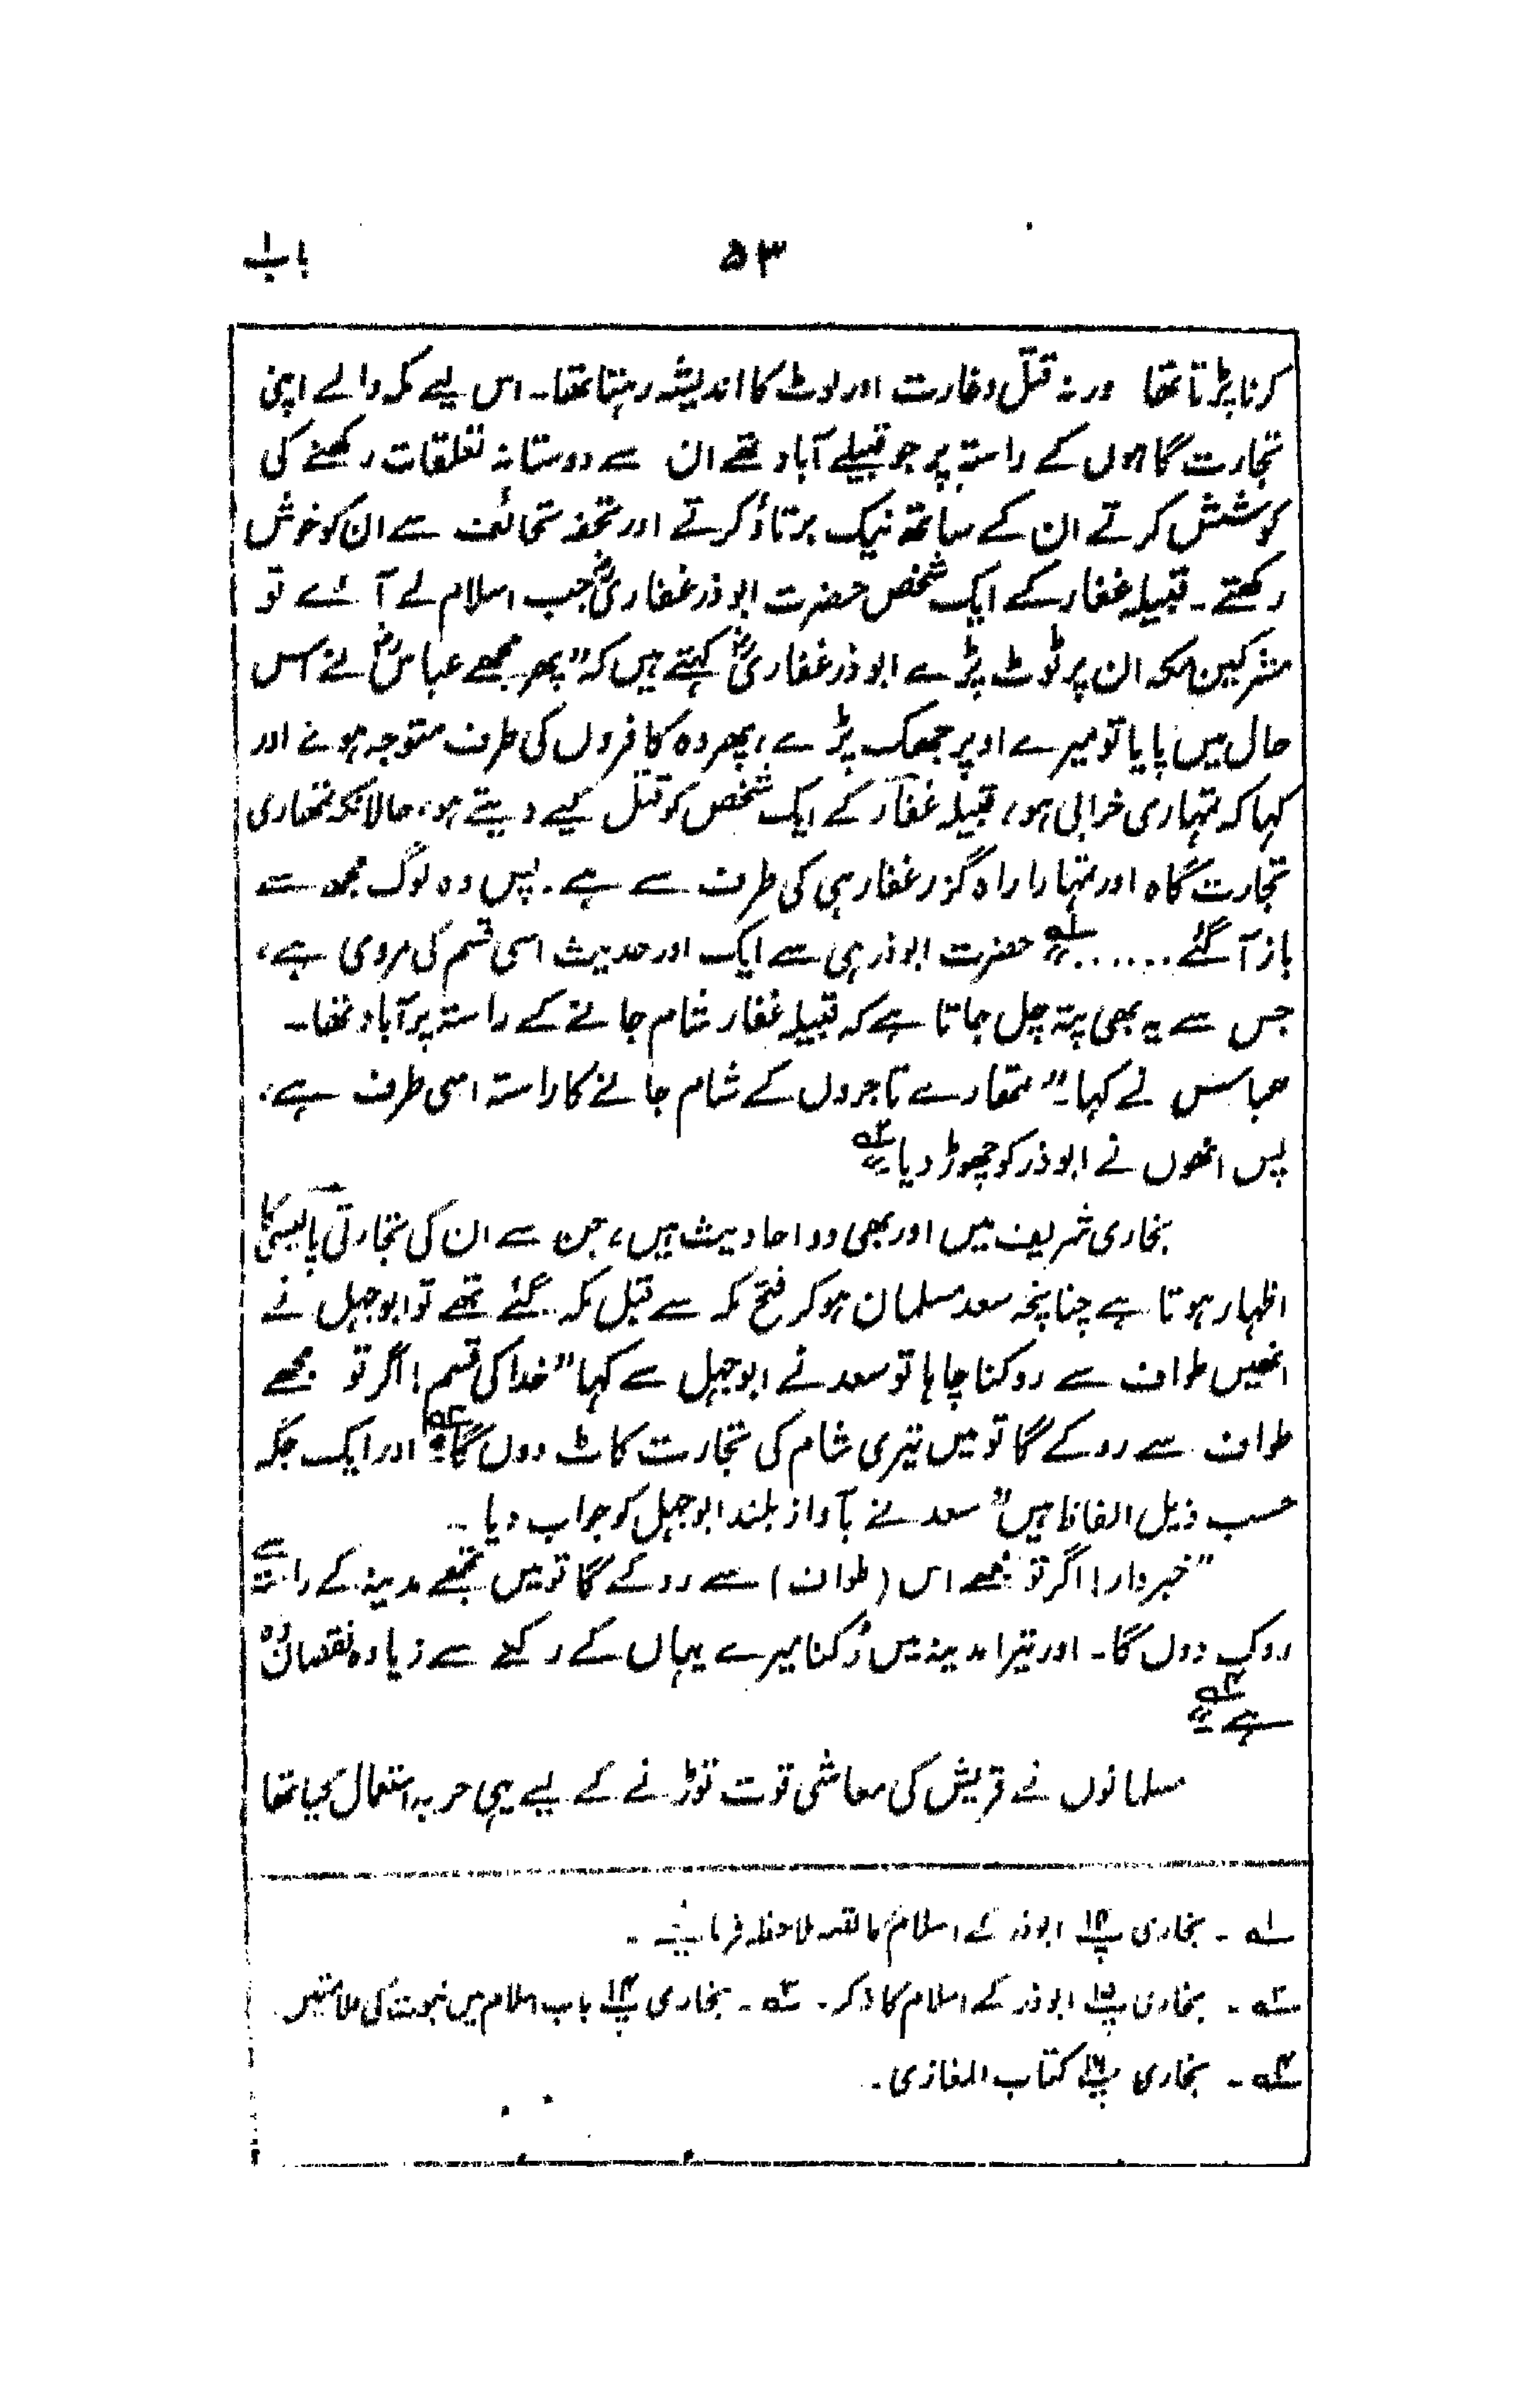 ۵۳
باب ۱
کرنا پڑتا تھا ورنہ قتل و غارت اور لوٹ کا اندیشہ رہتا تھا۔ اس لیے مکہ والے اپنی
تجارت گاہوں کے راستہ پر جو قبیلے آباد تھے ان سے دوستانہ تعلقات رکھنے کی
کوشش کرتے ان کے ساتھ نیک برتاؤ کرتے اور تحفہ تحائف سے ان کو خوش
رکھتے۔ قبیلہ غفار کے ایک شخص حضرت ابوذر غفاریؓ جب اسلام لے آئے تو
مشرکین مکہ ان پر ٹوٹ پڑے ابوذر غفاریؓ کہتے ہیں کہ "پھر مجھے عباسؓ نے اس
حال میں پایا تو میرے اوپر جھک پڑے، پھر وہ کافروں کی طرف متوجہ ہوئے اور
کہا کہ تمہاری خرابی ہو، قبیلہ غفار کے ایک شخص کو قتل کیے دیتے ہو، حالانکہ تمھاری
تجارت گاہ اور تمہارا راہ گزر غفار ہی کی طرف سے ہے۔ پس وہ لوگ مجھ سے
باز آگئے ......"۱؎ حضرت ابوذر ہی سے ایک اور حدیث اسی قسم کی مروی ہے،
جس سے یہ بھی پتہ چل جاتا ہے کہ قبیلہ غفار شام جانے کے راستہ پر آباد تھا۔
عباس نے کہا۔" تمھارے تاجروں کے شام جانے کا راستہ اسی طرف ہے،
پس انھوں نے ابوذر کو چھوڑ دیا"۲؎
بخاری شریف میں اور بھی دو احادیث ہیں، جن سے ان کی تجارتی پالیسی کا
اظہار ہوتا ہے چنانچہ سعد مسلمان ہو کر فتح مکہ سے قبل مکہ گئے تھے تو ابوجہل نے
انھیں طواف سے روکنا چاہا تو سعد نے ابوجہل سے کہا "خدا کی قسم! اگر تو مجھے
طواف سے روکے گا تو میں تیری شام کی تجارت کاٹ دوں گا"۳؎ اور ایک جگہ
حسب ذیل الفاظ ہیں" سعد نے بآواز بلند ابوجہل کو جواب دیا۔
"خبردار! اگر تو مجھے اس (طواف) سے روکے گا تو میں تجھے مدینہ کے راستے
روک دوں گا۔ اور تیرا مدینہ میں رُکنا میرے یہاں کے رکنے سے زیادہ نقصان دہ
ہے"۴؎
مسلمانوں نے قریش کی معاشی قوت توڑنے کے لیے یہی حربہ استعمال کیا تھا
۱؎ ۔ بخاری پ۱۵ ابوذر کے اسلام کا قصہ ملاحظہ فرمائیے۔
۲؎ ۔ بخاری پ۱۵ ابوذر کے اسلام کا ذکر۔ ۳؎ ۔ بخاری پ۱۴ باب اسلام میں نبوت کی علامتیں
۴؎ ۔ بخاری پ۱۶ کتاب المغازی۔